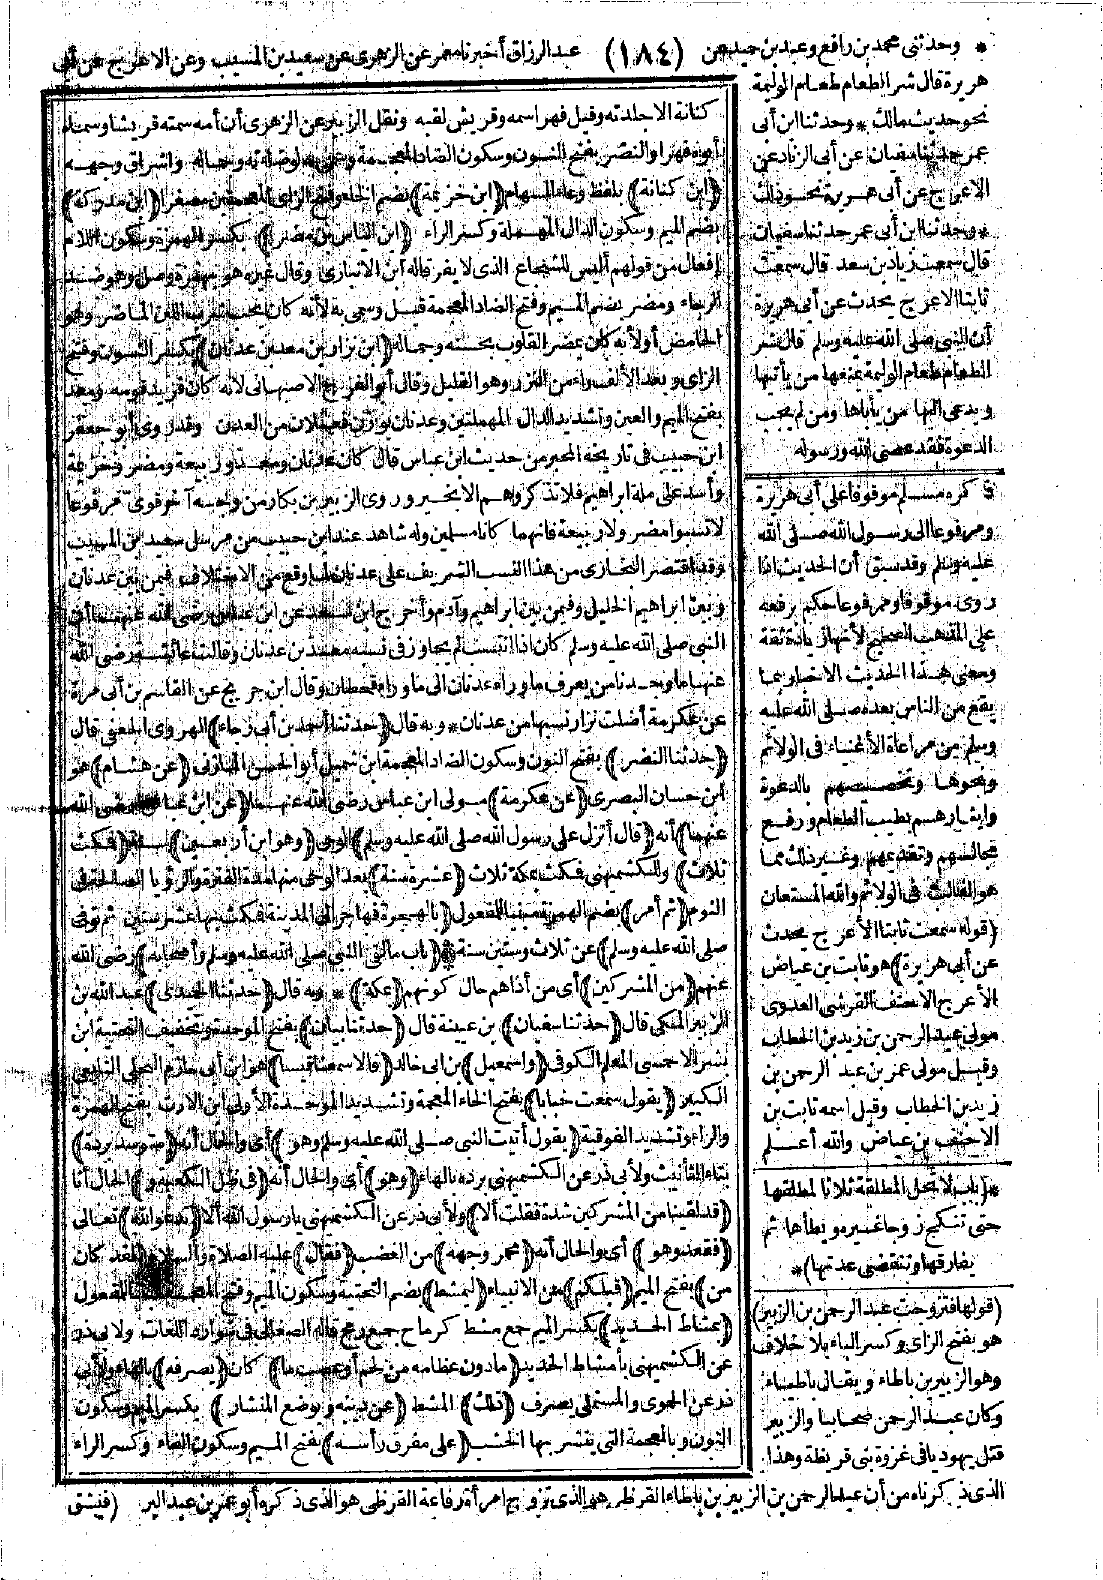 * وحدثني محمد بن رافع وعبد بن حميد عن (١٨٤) عبد الرزاق أخبرنا معمر عن الزهري عن سعيد بن المسيب وعن الاعرج عن أبي
هريرة قال شر الطعام طعام الوليمة
نحو حديث مالك * وحدثنا ابن أبي
عمر حدثنا سفيان عن أبي الزناد عن
الاعرج عن أبي هريرة نحو ذلك
* وحدثنا ابن أبي عمر حدثنا سفيان
قال سمعت زياد بن سعد قال سمعت
ثابتا الاعرج يحدث عن أبي هريرة
أن النبي صلى الله عليه وسلم قال شر
الطعام طعام الوليمة يمنعها من يأتيها
ويدعى اليها من يأباها ومن لم يجب
الدعوة فقد عصى الله ورسوله
ذكره مسلم موقوفا على أبي هريرة
ومرفوعا الى رسول الله صلى الله
عليه وسلم وقد سبق أن الحديث اذا
روى موقوفا ومرفوعا حكم برفعه
على المذهب الصحيح لأنها زيادة ثقة
ومعنى هذا الحديث الاخبار بما
يقع من الناس بعده صلى الله عليه
وسلم من مراعاة الأغنياء في الولائم
ونحوها وتخصيصهم بالدعوة
وايثارهم بطيب الطعام ورفع
مجالسهم وتقديمهم وغير ذلك مما
هو الغالب في الولائم والله المستعان
(قوله سمعت ثابتا الأعرج يحدث
عن أبي هريرة) هو ثابت بن عياض
الأعرج الاحنف القرشي العدوي
مولى عبد الرحمن بن زيد بن الخطاب
وقيل مولى عمر بن عبد الرحمن بن
زيد بن الخطاب وقيل اسمه ثابت بن
الاحنف بن عياض والله أعلم
*(باب لا تحل المطلقة ثلاثا لمطلقها
حتى تنكح زوجا غيره ويطأها ثم
يفارقها وتنقضي عدتها)*
(قولها فتزوجت عبد الرحمن بن الزبير)
هو بفتح الزاي وكسر الباء بلا خلاف
وهو الزبير بن باطاء ويقال باطياء
وكان عبد الرحمن صحابيا والزبير
قتل يهوديا في غزوة بني قريظة وهذا
الذي ذكرناه من أن عبد الرحمن بن الزبير بن باطاء القرظي هو الذي تزوج امرأة رفاعة القرظي هو الذي ذكره أبو عمر بن عبد البر (فبشق
كنانة الا جلدته وقيل فهر اسمه وقريش لقبه ونقل الزبير عن الزهري أن أمه سمته قريشا وسماه
أبوه فهرا والنضر بفتح النون وسكون الضاد المعجمة وجماله واشراق وجهه
(ابن كنانة) بلفظ وعاء السهام (ابن خزيمة) بضم الخاء وفتح الزاي المعجمتين مصغرا (ابن مدركة)
بضم الميم وسكون الدال المهملة وكسر الراء (ابن الياس بن مضر) بكسر الهمزة وسكون اللام
إفعال من قولهم أليس للشجاع الذي لا يفر قاله ابن الانباري وقال غيره هو بهمزة وصل وهو ضد
الرجاء ومضر بضم الميم وفتح الضاد المعجمة قيل وسمي به لأنه كان يحب شرب اللبن الماضر وهو
الحامض أو لأنه كان يمضر القلوب بحسنه وجماله (ابن نزار بن معد بن عدنان) بكسر النون وفتح
الزاي وبعد الألف راء من النزر وهو القليل وقال أبو الفرج الاصبهاني لانه كان فريد قومه ومعد
بفتح الميم والعين وتشديد الدال المهملتين وعدنان بوزن فعلان من العدن وقد روى أبو جعفر
ابن حبيب في تاريخه المحبر من حديث ابن عباس قال كان عدنان ومعد وربيعة ومضر وخزيمة
وأسد على ملة ابراهيم فلا تذكروهم الا بخير وروى الزبير بن بكار من وجه آخر قوي مرفوعا
لا تسبوا مضر ولا ربيعة فانهما كانا مسلمين وله شاهد عند ابن حبيب من مرسل سعيد ابن المسيب
وقد اقتصر البخاري من هذا النسب الشريف على عدنان لما وقع من الاختلاف فيمن بين عدنان
وبين ابراهيم الخليل وفيمن بين ابراهيم وآدم وأخرج ابن سعد عن ابن عباس رضي الله عنهما أن
النبي صلى الله عليه وسلم كان اذا انتسب لم يجاوز في نسبه معد بن عدنان وقالت عائشة رضي الله
عنها ما وجدنا من يعرف ما وراء عدنان الى ما وراء قحطان وقال ابن جريج عن القاسم بن أبي بزة
عن عكرمة أضلت نزار نسبها من عدنان * وبه قال (حدثنا أحمد بن أبي رجاء) الهروي الحنفي قال
(حدثنا النضر) بفتح النون وسكون الضاد المعجمة ابن شميل أبو الحسن المازني (عن هشام) هو
ابن حسان البصري (عن عكرمة) مولى ابن عباس رضي الله عنهما (عن ابن عباس رضي الله
عنهما) أنه (قال أنزل على رسول الله صلى الله عليه وسلم) الوحي (وهو ابن أربعين) سنة (فمكث
ثلاث) وللكشميهني فمكث بمكة ثلاث (عشرة سنة) بعد الوحي منها مدة الفترة والرؤيا الصالحة في
النوم (ثم أمر) بضم الهمزة مبنيا للمفعول (بالهجرة فهاجر الى المدينة فمكث بها عشر سنين ثم توفي
صلى الله عليه وسلم) عن ثلاث وستين سنة *(باب ما لقي النبي صلى الله عليه وسلم وأصحابه) رضي الله
عنهم (من المشركين) أي من أذاهم حال كونهم (بمكة) * وبه قال (حدثنا الحميدي) عبد الله بن
الزبير المكي قال (حدثنا سفيان) بن عيينة قال (حدثنا بيان) بفتح الموحدة وتخفيف التحتية ابن
بشر الاحمسي المعلم الكوفي (واسمعيل) بن أبي خالد (قالا سمعنا قيسا) هو ابن أبي حازم البجلي التابعي
الكبير (يقول سمعت خبابا) بفتح الخاء المعجمة وتشديد الموحدة الأولى ابن الارت بفتح الهمزة
والراء وتشديد الفوقية (يقول أتيت النبي صلى الله عليه وسلم وهو) أي والحال أنه (متوسد بردة)
بتاء التأنيث ولأبي ذر عن الكشميهني برده بالهاء (وهو) أي والحال أنه (في ظل الكعبة و) الحال أنا
(قد لقينا من المشركين شدة فقلت ألا) ولأبي ذر عن الكشميهني يا رسول الله ألا (تدعو الله) تعالى
(فقعد وهو) أي والحال أنه (محمر وجهه) من الغضب (فقال) عليه الصلاة والسلام (لقد كان
من) بفتح الميم (قبلكم) من الانبياء (ليمشط) بضم التحتية وسكون الميم وفتح المعجمة مبنيا للمفعول
(بمشاط الحديد) بكسر الميم جمع مشط كرماح جمع رمح قاله الصغاني في شوارد اللغات ولابي ذر
عن الكشميهني بأمشاط الحديد (ما دون عظامه من لحم أو عصب ما) كان (يصرفه) بالهاء ولأبي
ذر عن الحموي والمستملي يصرف (ذلك) المشط (عن دينه ويوضع المنشار) بكسر الميم وسكون
النون وبالمعجمة التي ينشر بها الخشب (على مفرق رأسه) بفتح الميم وسكون الفاء وكسر الراء